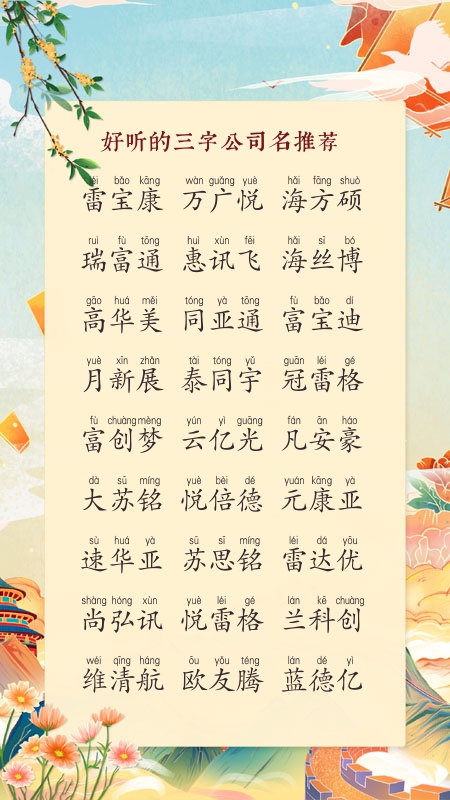 好听的三字公司名推荐
léi bǎo kāng wàn guǎng yuè hǎi fāng shuò
雷宝康 万广悦 海方硕
ruì fù tōng huì xùn fēi hǎi sī bó
瑞富通 惠讯飞 海丝博
gāo huá měi tóng yà tōng fù bǎo dí
高华美 同亚通 富宝迪
yuè xīn zhǎn tài tóng yǔ guān léi gé
月新展 泰同宇 冠雷格
fù chuàng mèng yún yì guāng fán ān háo
富创梦 云亿光 凡安豪
dà sū míng yuè bèi dé yuán kāng yà
大苏铭 悦倍德 元康亚
sù huá yà sū sī míng léi dá yōu
速华亚 苏思铭 雷达优
shàng hóng xùn yuè léi gé lán kē chuàng
尚弘讯 悦雷格 兰科创
wéi qīng háng ōu yǒu téng lán dé yì
维清航 欧友腾 蓝德亿